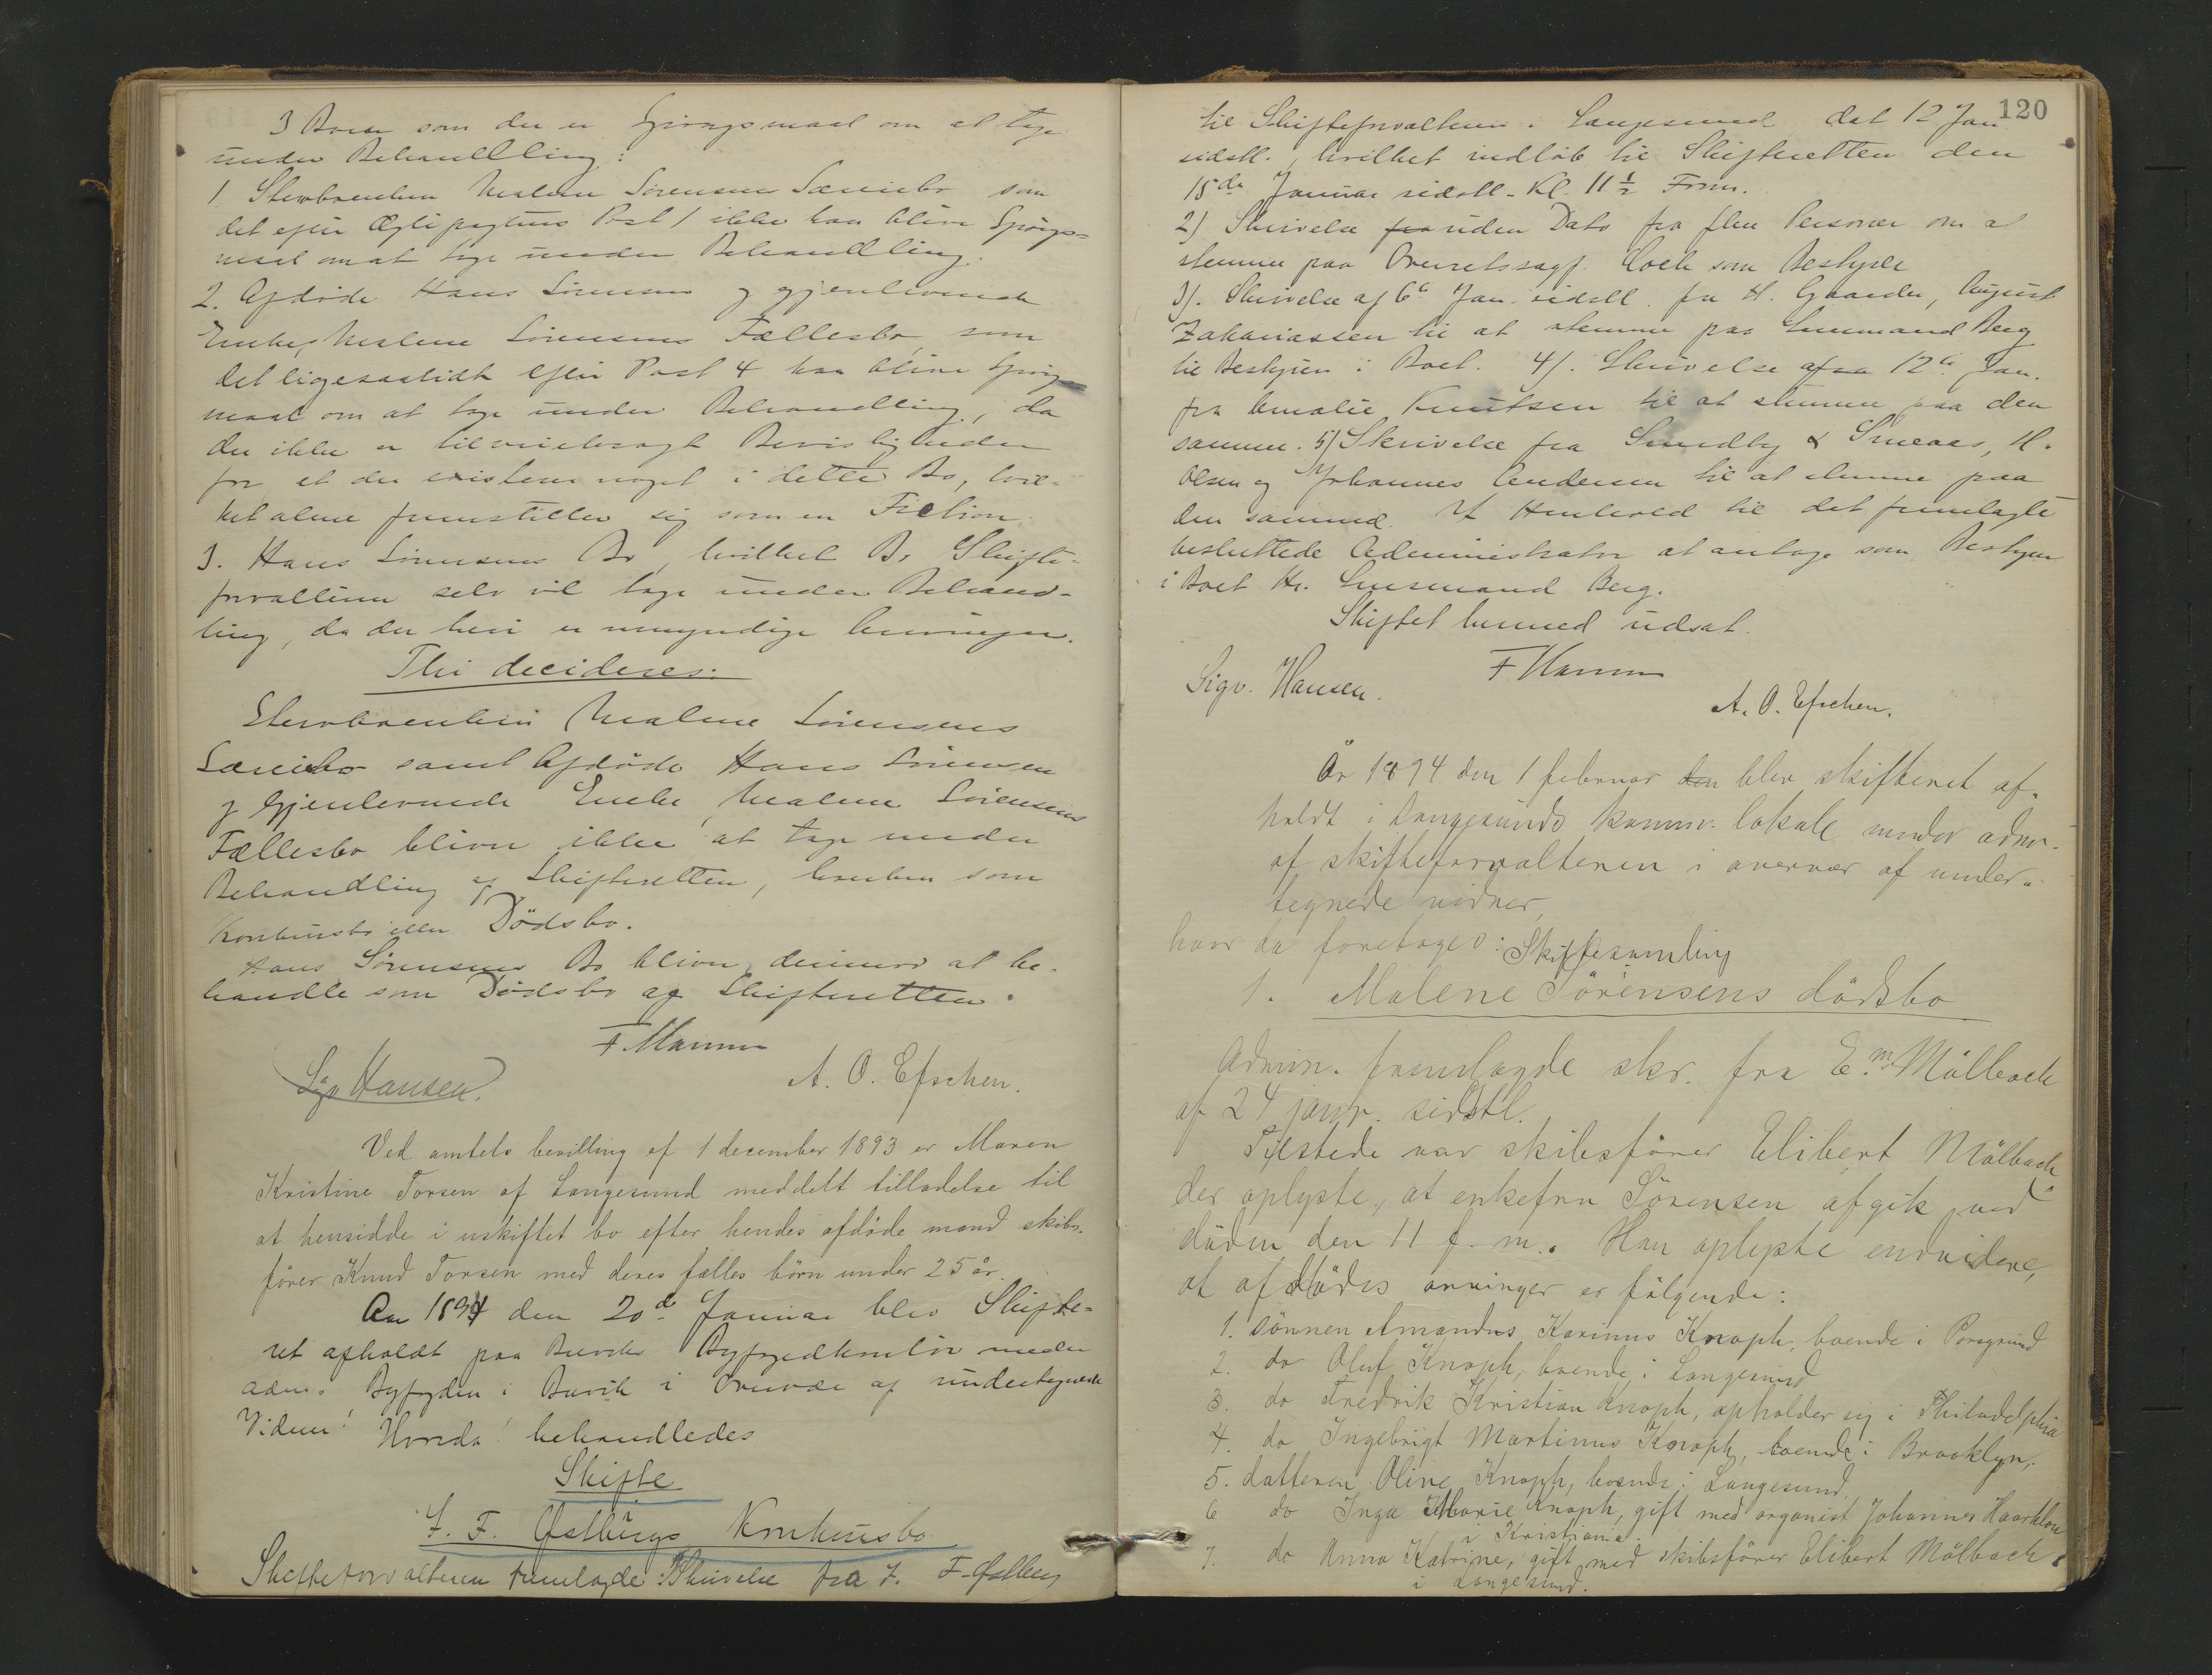 3 Boer som der er Spörgsmaal om at tage
under Behandlling:
1 Sterboenken Malene Sörensens Særiebo som
det efter Ægtepagtens Post 1 ikke kan blive Spörgs=
maal om at tage under Behandlling.
2. Afdöde Hans Sörensens og gjenlevende
Enke, Malene Sörensens Fællesbo, som
det ligesaalidt efter Post 4 kan blive Spörgs
maal om at tage under Behandling, da
der ikke er tilveiebragt Bevisligheder
for at der existerer noget i dette Bo, hvil-
ket alene fremstiller sig som en Fiction.
3. Hans Sörensens Bo, hvilket Bo Skifte-
forvalteren selv vil tage under Behand-
ling, da der heri er umyndige Arvinger.
Thi decideres:
Sterboenken Malene Sörensens
Særiebo samt Afdöde Hans Sörensen
og Gjenlevende Enke, Malene Sörensens
Fællesbo bliver ikke at tage under
Behandling af Skifteretten, hverken som
Konkursbo eller Dödsbo.
Hans Sörensens Bo bliver derimod at be-
handle som Dödsbo af Skifteretten.
Sigv Hansen.
A. O. Efschen.
Ved amtets bevilling af 1 december 1893 er Maren
Kristine Torsen af Langesund meddelt tilladelse til
at hensidde i uskiftet bo efter hendes afdöde mand skibs-
förer Knud Torsen med deres fælles börn under 25 år.
Aar 1894 den 20de Januar blev Skifte-
ret afholdt paa Brevik Byfogedkontor under
adm. Byfogden i Brevik i Overvær af undertegnede
Vidner! Hvorda! behandledes
Skifte
F. F. Östbergs Konkursbo
Skifteforvalteren fremlagde: 1) Skrivelse fra F. F. Östberg
120
til Skifteforvalteren i Langesund, dat 12 Jan
sidstl., hvilket indlöb til Skifteretten den
15de Januar sidstl. Kl. 11 1/2 Form.
2) Skrivelse fra uden Dato fra flere Personer om at
stemme paa Overretssagf. Coch som Bestyrer
3). Skrivelse af 6te Jan. sidstl. fra H. Gaarder, August
Zakariassen til at stemme paa Lensmand Berg
til Bestyrer i Boet. 4). Skrivelse af 12te Jan.
fra Amalie Knutsen til at stemme paa den
samme. 5) Skrivelse fra Sundby & Smaas, H.
Olsen og Johannes Andersen til at stemme paa
den samme. I Henhold til det fremlagte
besluttede Administrator at antage som Bestyrer
i Boet Hr. Lensmand Berg.
Skiftet hermed udsat.
Sigv. Hansen.
A. O. Efschen.
År 1894 den 1 februar den blev skifteret af-
holdt i Langesunds kommu. lokale under adm.
af skifteforvalteren i overvær af under-
tegnede vidner,
hvor da foretoges: Skiftesamling
1. Malene Sörensens dödsbo
Admin. fremlagde skr. fra E. Mölback
af 24 janr. sidstl.
Tilstede var skibsförer Elibert Mölback
der oplyste, at enkefru Sörensen afgik ved
döden den 11 f. m. Han oplyste endvidere,
at afdödes arvinger er fölgende:
1. sönnen Amandus Karinus Knoph, boende i Porsgrund
2. do Oluf Knoph, boende i Langesund
3. do Fredrik Kristian Knoph, opholder sig i Philadelphia
4. do Ingebrigt Martinus Knoph, boende i Brooklyn,
5. datteren Oline Knoph, boende i Langesund,
6 do Inga Marie Knoph, gift med organist Johannes Haarklou
i Kristiania.
7. do Anna Katrine, gift med skibsförer Elibert Mölback
i Langesund.